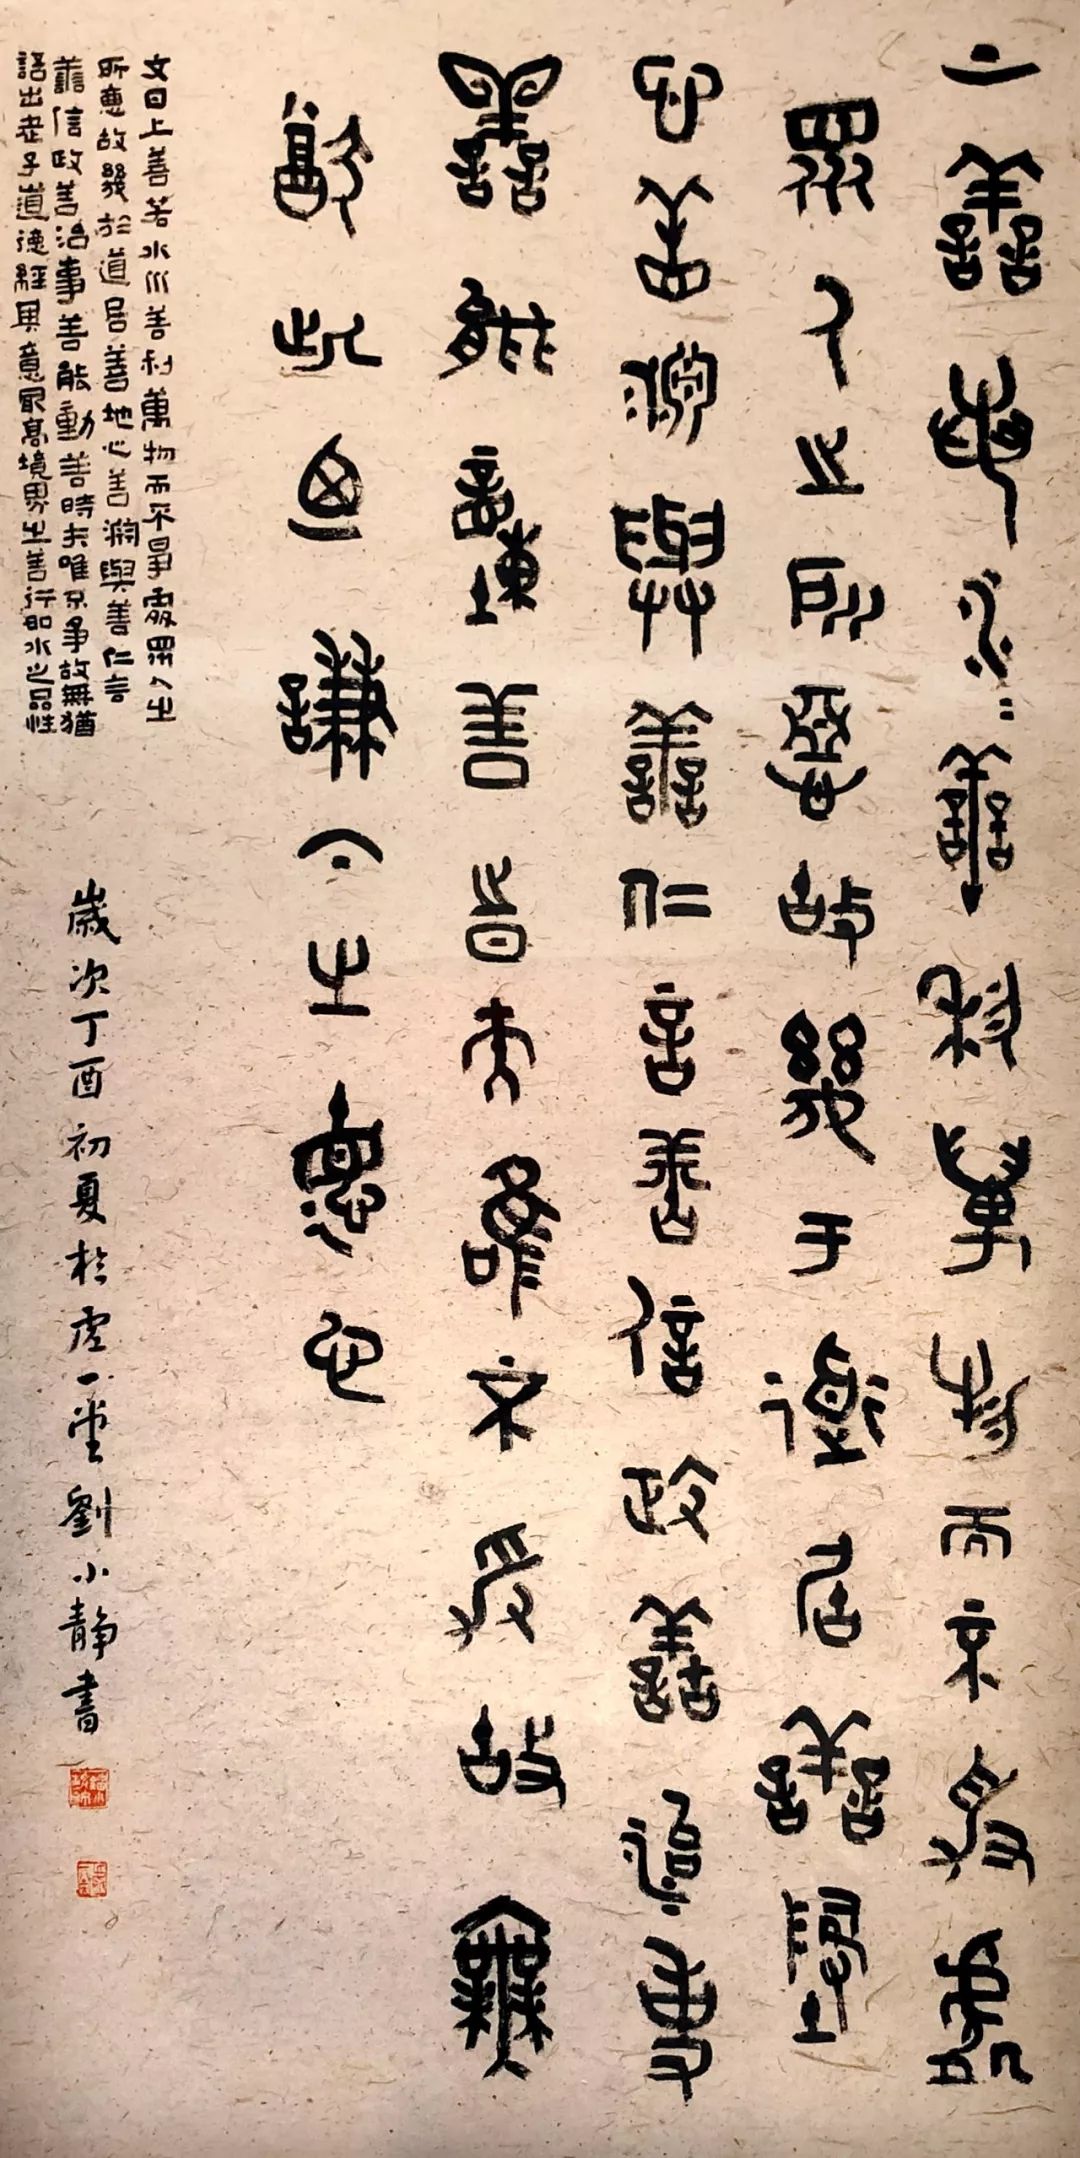 上善若水=善利萬物而不爭處
眾人之所惡故幾于道居善地
心善淵與善仁言善信政善治事
善能動善時夫唯不爭故無
猶此迺謙下之德也
文曰上善若水水善利萬物而不爭處眾人之
所惡故幾於道居善地心善淵與善仁言
善信政善治事善能動善時夫唯不爭故無猶
語出老子道德經其意最高境界之善行如水之品性
歲次丁酉初夏於虛一堂劉小靜書